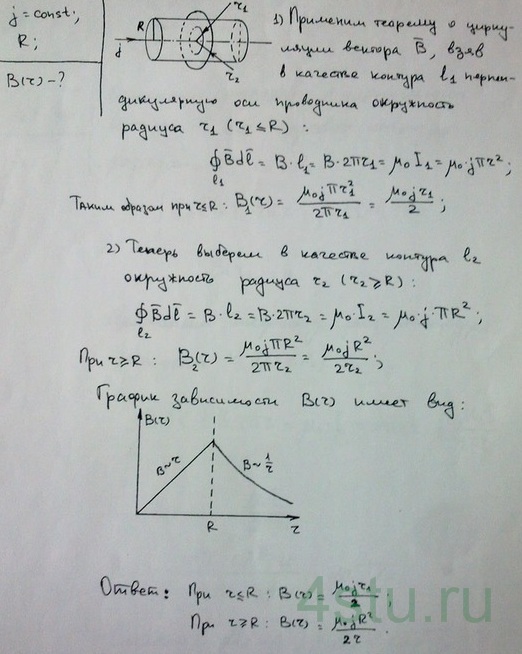 j = const;
R;
B(r) - ?
R
j
r₁
r₂
1) Применим теорему о цирку-
ляции вектора B̅, взяв
в качестве контура l₁ перпен-
дикулярную оси проводника окружность
радиуса r₁ (r₁ ≤ R):
∮B̅dl̅ = B·l₁ = B·2πr₁ = μ₀I₁ = μ₀·jπr²;
l₁
Таким образом при r≤R: B₁(r) = μ₀jπr₁²/2πr₁ = μ₀jr₁/2;
2) Теперь выберем в качестве контура l₂
окружность радиуса r₂ (r₂ ≥ R):
∮B̅dl̅ = B·l₂ = B·2πr₂ = μ₀·I₂ = μ₀·j·πR²;
l₂
При r≥R: B₂(r) = μ₀jπR²/2πr₂ = μ₀jR²/2r₂;
График зависимости B(r) имеет вид:
B(r)
B~r
B~1/r
R
r
Ответ: При r≤R: B(r) = μ₀jr₁/2;
При r≥R: B(r) = μ₀jR²/2r.
4stu.ru